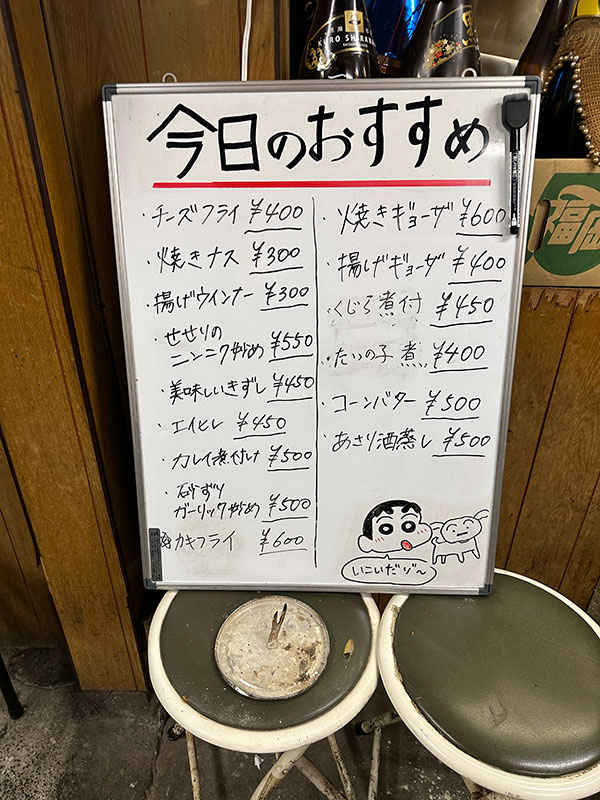 KURO SHIRA
今日のおすすめ
・チーズフライ ¥400
・焼きナス ¥300
・揚げウインナー ¥300
・せせりの
ニンニク炒め ¥550
・美味しいきずし ¥450
・エイヒレ ¥450
・カレイ煮付け ¥500
・砂ずり
ガーリック炒め ¥500
カキフライ ¥600
・焼きギョーザ ¥600
・揚げギョーザ ¥400
・くじら煮付 ¥450
・たいの子煮 ¥400
・コーンバター ¥500
・あさり酒蒸し ¥500
いこいだゾ〜
福